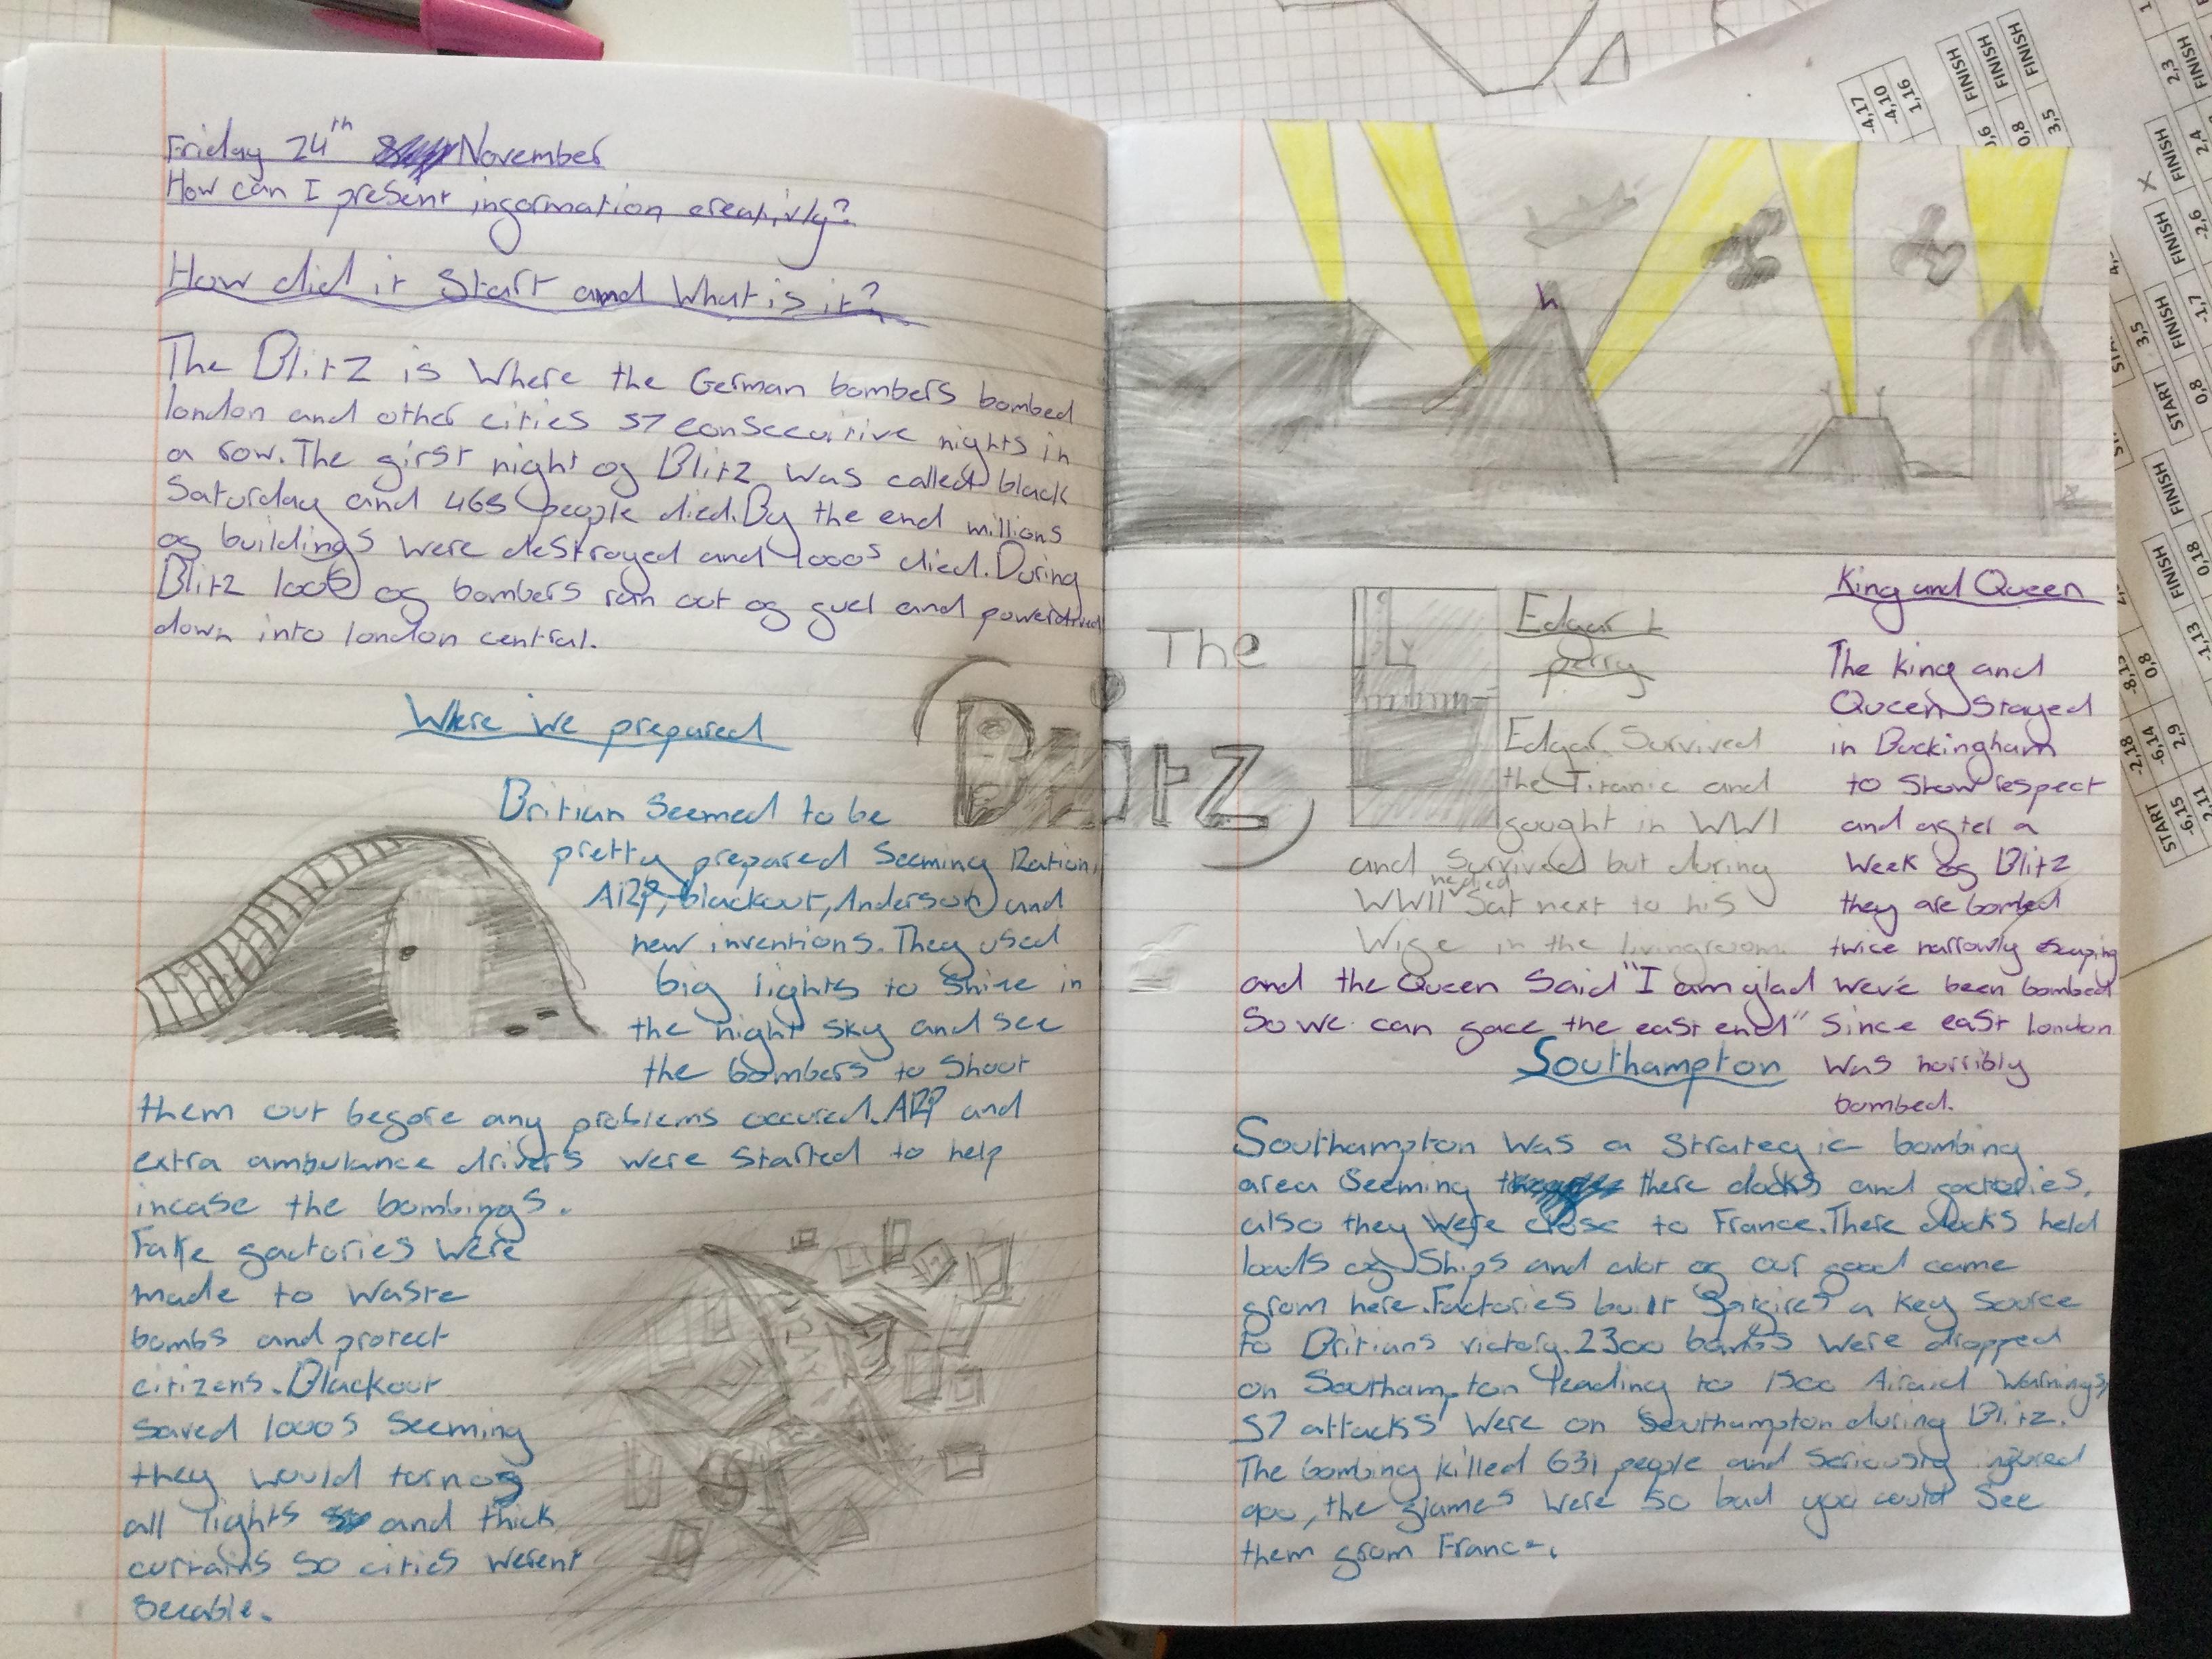 Friday 24th November
How can I present information creativly?
How did it Start and What is it?
The Blitz is Where the German bombers bombed
london and other cities 57 consecuitive nights in
a row. The first night of Blitz was called black
Saturday and 465 people died. By the end millions
of buildings were destroyed and 1000s died. During
Blitz 100s of bombers ran out of fuel and powerdived
down into london central.
Where we prepared
Britian Seemed to be
pretty prepared Seeming Ration,
ARP, blackout, Anderson and
new inventions. They used
big lights to Shine in
the night sky and see
the bombers to Shoot
them out before any problems occured. ARP and
extra ambulance drivers were started to help
incase the bombings.
Fake factories were
made to waste
bombs and protect
citizens. Blackout
Saved 1000s Seeming
they would turn off
all lights and thick
curtains So cities werent
Seeable.
The
Blitz
Edgar L
perry
Edgar Survived
the Titanic and
fought in WW1
and Survived but during
WWII he died Sat next to his
Wife in the livingroom.
King and Queen
The king and
Queen Stayed
in Buckingham
to Show respect
and after a
Week of Blitz
they are bombed
twice narrowly escaping
and the Queen Said "I am glad we've been bombed
So we can face the east end" Since east London
was horribly
bombed.
Southampton
Southampton was a Strategic bombing
area Seeming there docks and factories,
also they were close to France. There docks held
loads of Ships and alot of our food came
from here. Factories built Spitfires a key Source
to Britians victory. 2300 bombs were dropped
on Southampton leading to 1500 Airaid Warnings,
57 attacks were on Southampton during Blitz.
The bombing killed 631 people and Seriously injured
900, the flames were so bad you could See
them from France.
START
FINISH
FINISH
FINISH
FINISH
FINISH
START
FINISH
START
FINISH
-4,17
-4,10
1,16
3,5
0,8
0,18
-1,13
-1,7
-2,6
2,4
2,3
-2,18
-6,14
2,9
-6,15
2,11